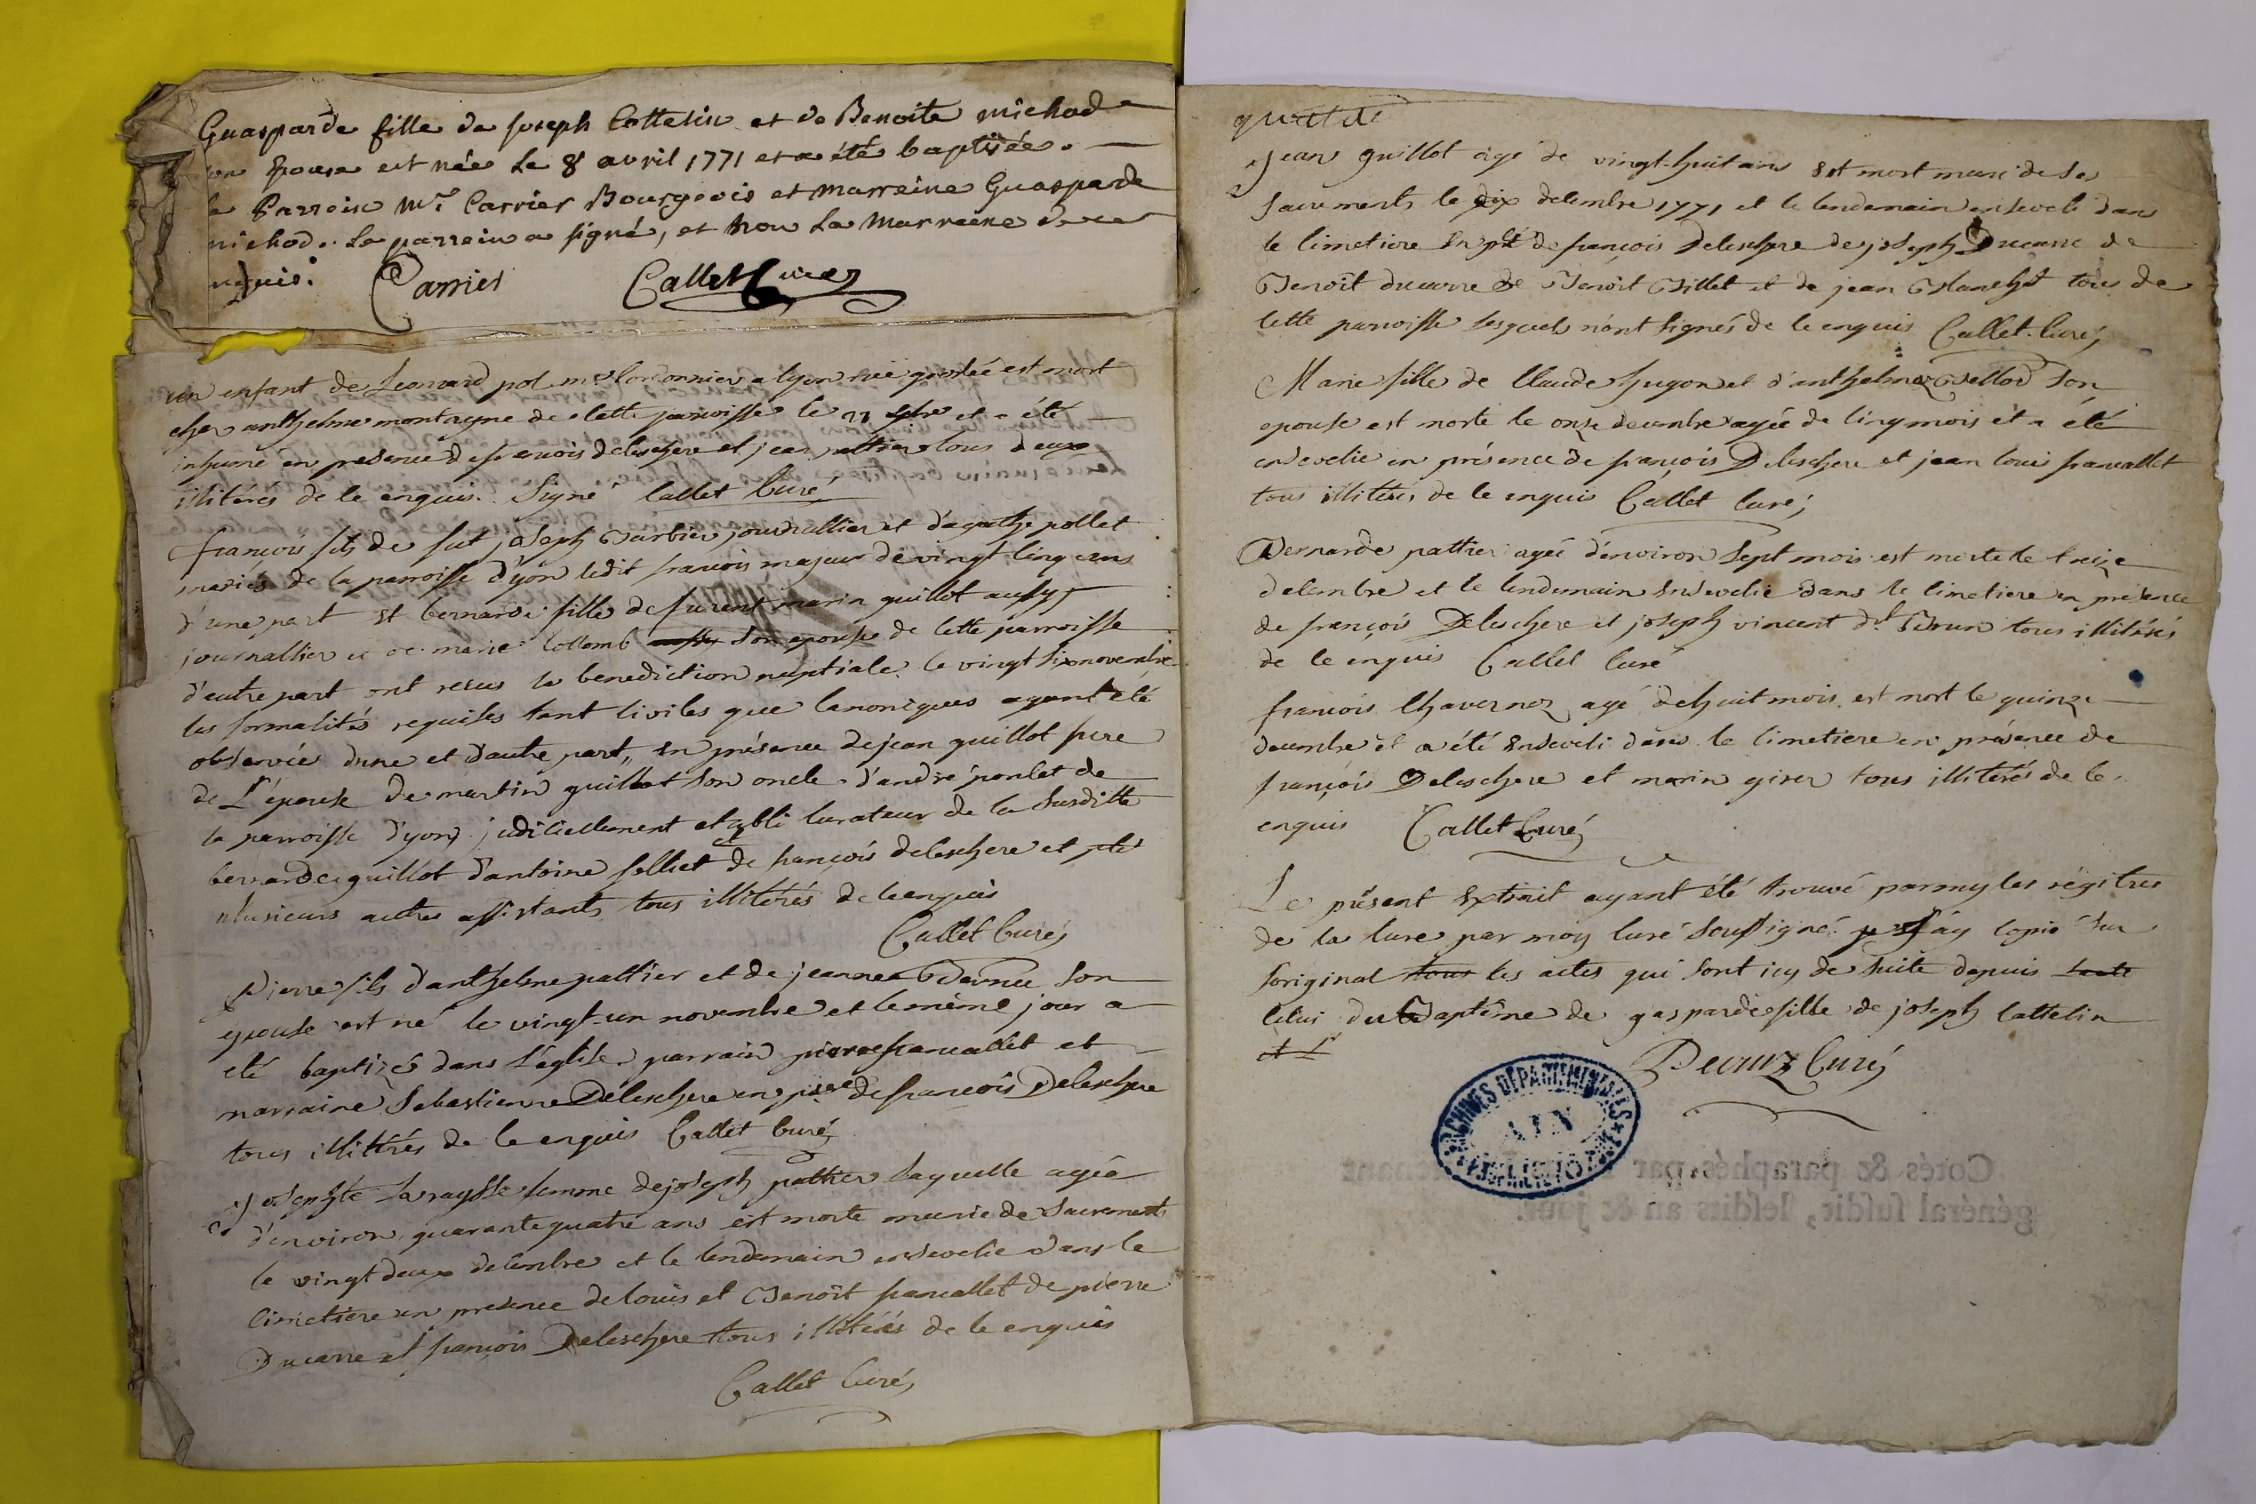 Guasparde fille de joseph Cottelin et de Benoite michod
son Epouse est née Le 8 avril 1771 et a été baptisée.
le Parrein Mr. Carrier Bourgeois et Marreine Guasparde
michod. Le parrein a signé, et non La Marreine de ce
requis. Carrier Callet Curé
un enfant de Leonard pol me Cordonnier a lyon rüe est mort
chez anthelme montagne de cette paroisse le et a été
inhumé en presence de francois deleschere et jean pattier tous deux
illitérés de ce enquis. Signé Callet Curé
françois fils de fut joseph Barbier journallier et d'agathe pollet
mariés de la parroisse d'yon ledit francois majeur de vingt cinq ans
d'une part et bernarde fille de furent marin guillot aussy
journallier et de marie Collomb son epouse de cette parroisse
d'autre part ont recus la benediction nuptiale le vingt six novembre
les formalités requises tant civiles que canoniques ayant été
observées d'une et d'autre part, en présence de jean guillot frere
de L'épouse de martin guillot son oncle d'andré ponlet de
la parroisse d'yon judiciellement etabli curateur de la susditte
bernarde guillot d'antoine folliet de françois deleschere et
plusieurs autres assistants tous illitérés de ce enquis
Callet Curé
Pierre fils d'anthelme pattier et de jeanne son
epouse est né le vingt-un novembre et le même jour a
eté baptizé dans l'église parrain pierre francallet et
marraine Sebastienne Deleschere en pnce de francois Deleschere
tous illittrés de ce enquis Callet Curé
Josephte Laraysse femme de joseph pattier laquelle agée
d'environ quarante quatre ans est morte munie de Sacrements
le vingt deux decembre et le lendemain ensevelie dans le
Cimetiere en presence de louis et Benoit francallet de pierre
Ducarre et françois Deleschere tous illitérés de ce enquis
Callet Curé
Jean guillot agé de vingt-huit ans Est mort muni de Ses
Sacrements le dix decembre 1771 et le lendemain enseveli dans
le Cimetiere En pce de françois Deleschere de joseph Ducarre de
Benoît ducarre de Benoît Billet et de jean Blanchet tous de
cette parroisse lesquels n'ont signés de ce enquis Callet Curé
Marie fille de Claude hugon et d'anthelme son
epouse est morte le onze decembre agée de cinq mois et a été
ensevelie en présence de françois Deleschere et jean loui francallet
tous illitérés de ce enquis Callet Curé
Bernarde pattier agée d'environ Sept mois est morte le treize
decembre et le lendemain Ensevelie dans le cimetiere en présence
de françois Deleschere et joseph vincent dt Brun tous illitérés
de ce enquis Callet Curé
françois Chavernoz agé de huit mois est mort le quinze
decembre et a été Enseveli dans le cimetiere en présence de
françois Deleschere et marin girer tous illiterés de ce
enquis Callet Curé
Le présent Extrait ayant été trouvé parmy les régitres
de la Cure par moy Curé Soussigné j'ay copié Sur
l'original tous les actes qui sont icy de Suite depuis
Celui du Baptême de gasparde fille de joseph Cattelin
et
Decruz Curé
ARCHIVES DÉPARTEMENTALES
AIN
Cotés & paraphés, par
général susdit, lesdits an & jour.